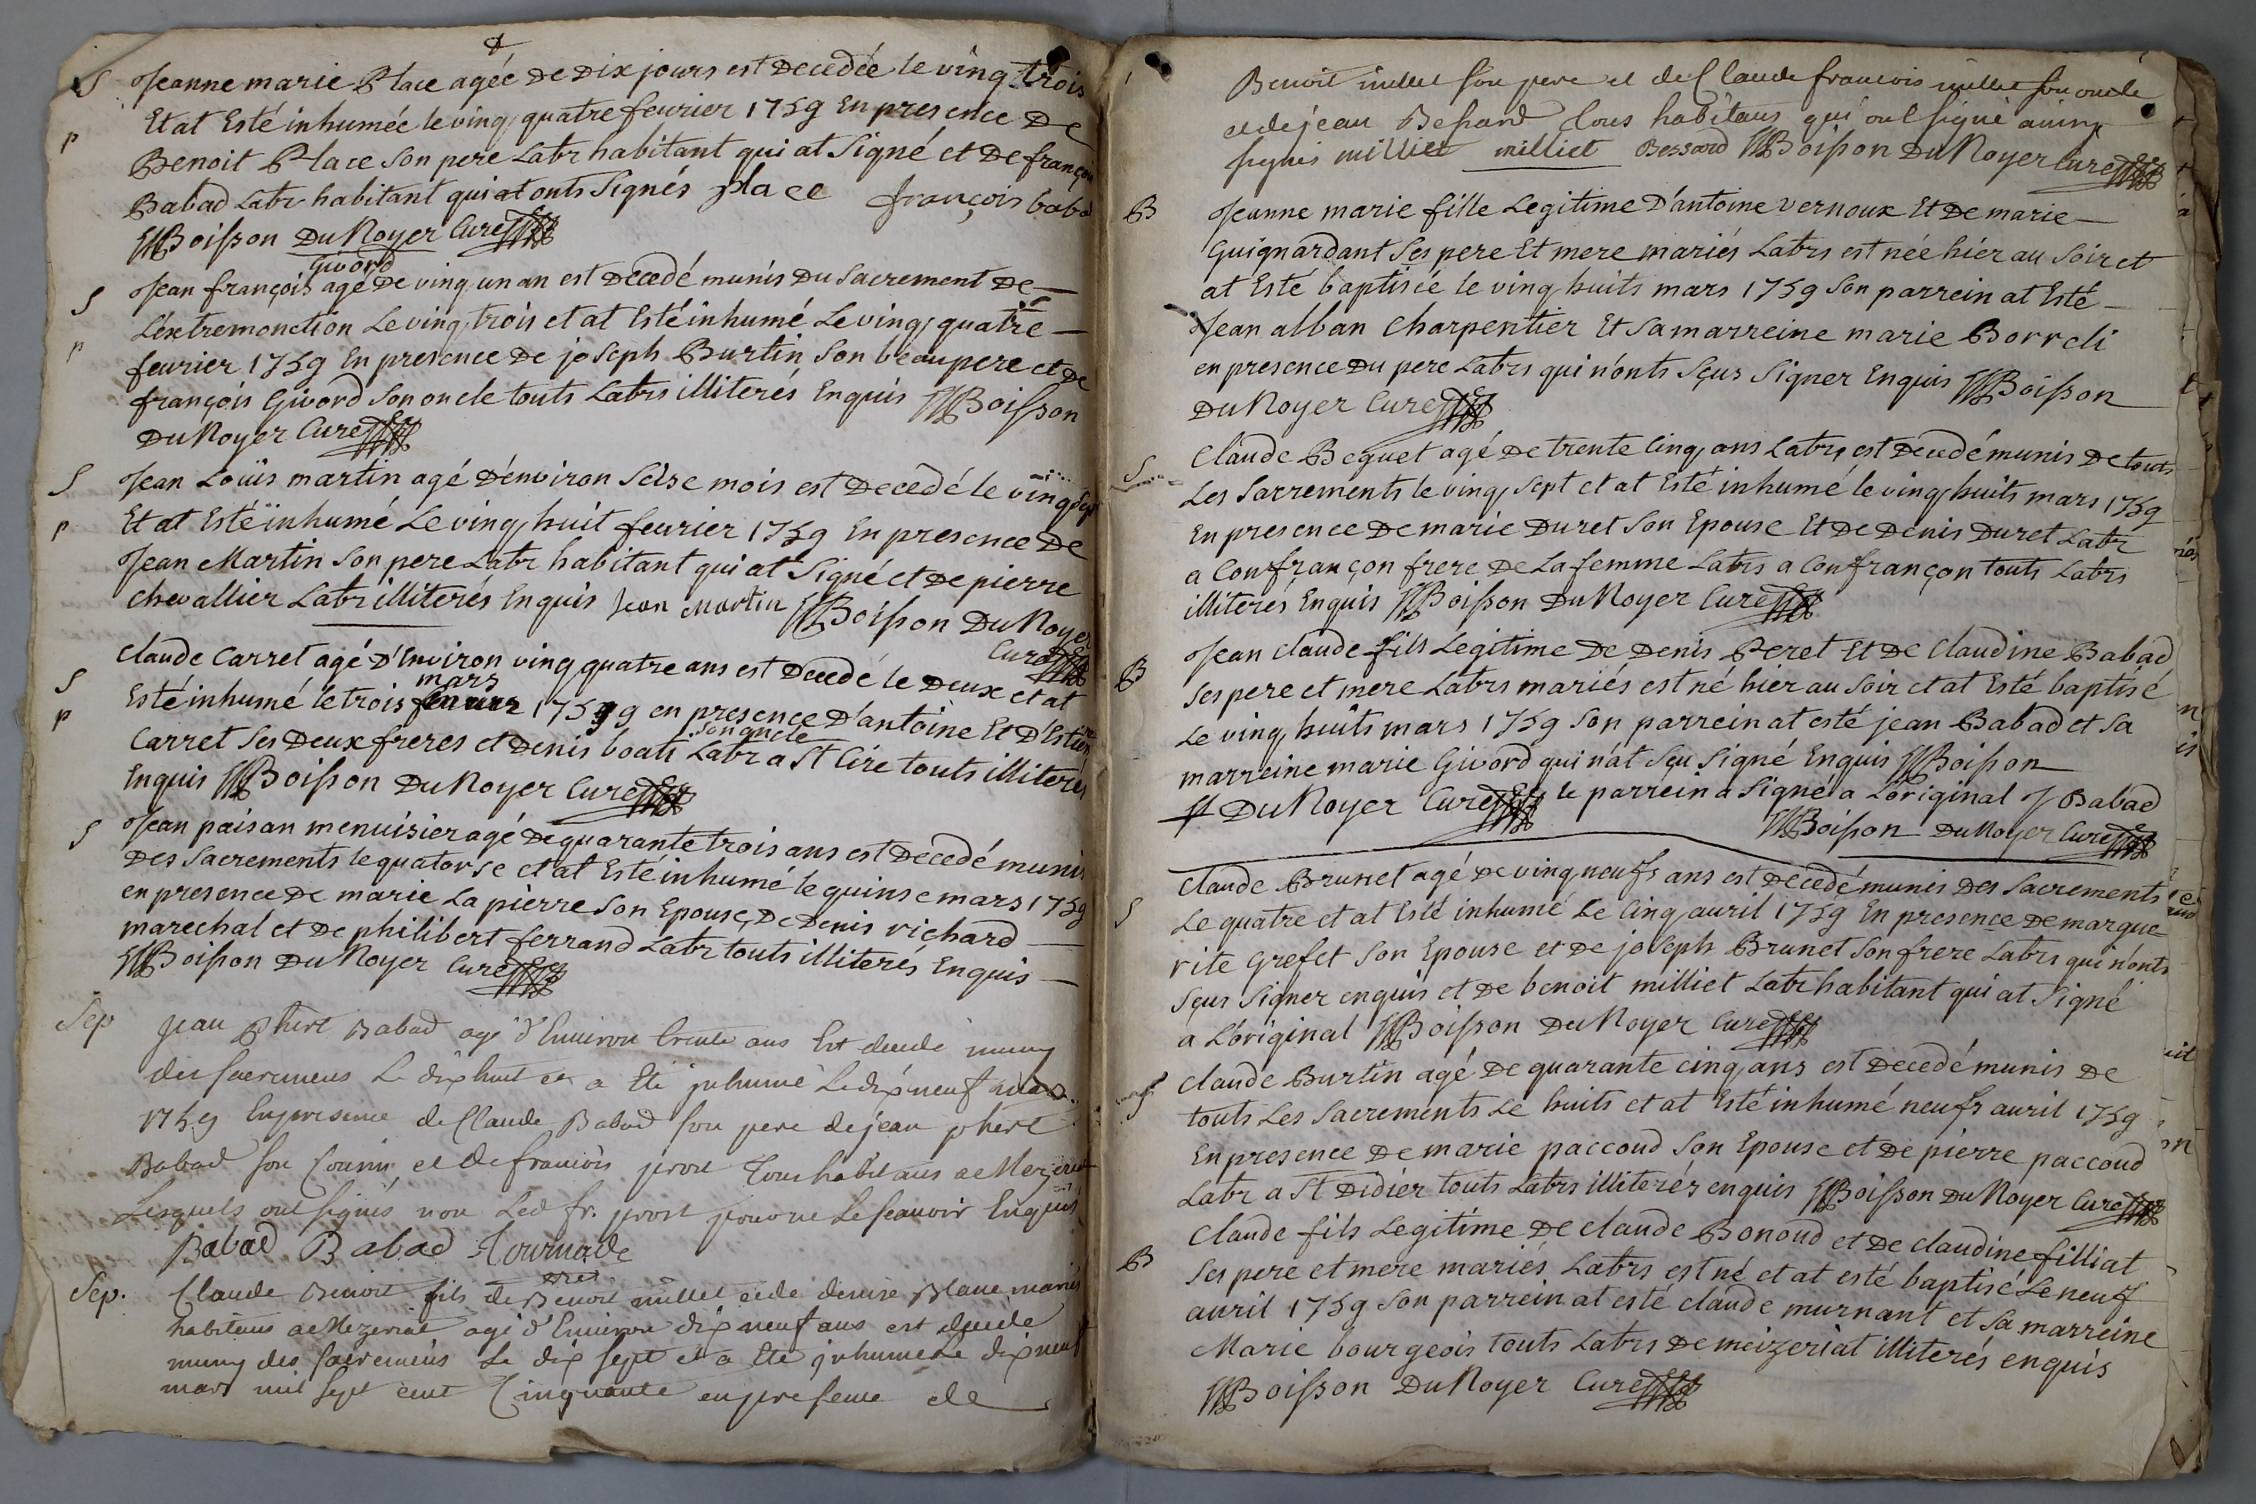 S Jeanne marie Place agée De Dix jours est Decedée le ving trois
Et at Esté inhumée le ving, quatre feurier 1759 En presence De
p
Benoit Place Son pere Labr habitant qui at Signé et De françois
Babad Labr habitant qui at onts Signés place françois babad
Boisson Du Noyer Curé
Givord
Jean françois agé De ving un an est Decedé munis Du Sacrement De
S
L'éxtremonction Le ving, trois et at Esté inhumé Le ving, quatre
p
feurier 1759 En presence De joseph Burtin Son beaupere et De
françois Givord Son oncle touts Labrs illiterés Enquis Boisson
Du Noyer Curé
S Jean Loüis martin agé D'environ Seise mois est Decedé le ving Sept
p Et at Esté inhumé Le ving, huit feurier 1759 En presence De
Jean Martin Son pere Labr habitant qui at Signé et De pierre
chevallier Labr illiterés Enquis Jean Martin Boisson Du Noyer
Curé
Claude Carret agé D'Environ ving quatre ans est Decedé le Deux et at
S
mars
Esté inhumé le trois feurier 1759 en presence D'antoine Et D'Estiene
p
son oncle
Carret Ses Deux freres et Denis boati Labr a St Cire touts illiterés
Enquis Boisson Du Noyer Curé
S Jean paisan menuisier agé De quarante trois ans est Decedé munis
Des Sacrements le quatorse et at Esté inhumé le quinse mars 1759
en presence De marie La pierre Son Epouse, De Denis richard
marechal et De philibert ferrand Labr touts illiterés Enquis
Boisson Du Noyer Curé
Sep jean Phert Babad agé d'Environ trente ans Est decedé muny
des sacremens Le dix huit et a Eté inhumé Le dix neuf mars
1759 En presence de Claude Babad son pere de jean phert
Babad son Cousin et de francois prost Tous habitans a Mezeriat
Lesquels ont signés non Led fr. prost pour ne Le scauoir Enquis
Babad Babad Tournade
Sep. Claude Benoit fils de Benoit millet et de denise Blanc mariés
habitans a Mezeriat agé d'Environ dix neuf ans est decedé
muny des sacremens Le dix sept et a Eté inhumé Le dix neuf
mars mil sept cent Cinquante en presence de
Benoit millet son pere et de Claude francois millet son oncle
et de jean Bessard tous habitans qui ont signé
milliet milliet Bessard Boisson Du Noyer Curé
B Jeanne marie fille Legitime D'antoine vernoux Et De marie
Guignardant Ses pere Et mere mariés Labrs est née hier au Soir et
at Esté baptisée le ving, huits mars 1759 Son parrein at Esté
Jean alban Charpentier Et Sa marreine marie Borreli
en presence Du pere Labrs qui n'onts Sçus Signer Enquis Boisson
Du Noyer Curé
S Claude Bequet agé De trente Cinq, ans Labr, est Decedé munis De touts
Les Sacrements le ving, Sept et at Esté inhumé le ving, huits mars 1759
En presence De marie Duret Son Epouse Et De Denis Duret Labr
a Confrançon frere De La femme Labrs a Confrançon touts Labrs
illiterés Enquis Boisson Du Noyer Curé
B Jean Claude fils Legitime De Denis Peret Et De Claudine Babad
Ses pere et mere Labrs mariés est né hier au Soir et at Esté baptisé
Le ving, huits mars 1759 Son parrein at esté jean Babad et Sa
marreine marie Givord qui n'at Sçu Signé Enquis Boisson
Du Noyer Curé le parrein a Signé a L'original J Babad
Boisson Du Noyer Curé
Claude Brunet agé De ving, neufs ans est Decedé munis Des Sacrements
S Le quatre et at Esté inhumé Le Cinq, auril 1759 En presence De margue
rite Grefet Son Epouse et De joseph Brunet Son frere Labrs qui n'onts
Sçus Signer enquis et De benoit milliet Labr habitant qui at Signé
a L'original Boisson Du Noyer Curé
S Claude Burtin agé De quarante cinq, ans est Decedé munis De
touts Les Sacrements Le huits et at Esté inhumé neufs auril 1759
En presence De marie paccoud Son Epouse et De pierre paccoud
Labr a St Didier touts Labrs illiterés enquis Boisson Du Noyer Curé
B Claude fils Legitime De claude Bonoud et De claudine filliat
Ses pere et mere mariés Labrs est né et at esté baptisé Le neuf
auril 1759 Son parrein at esté claude murnant et Sa marreine
Marie bourgeois touts Labrs De meizeriat illiterés enquis
Boisson Du Noyer Curé